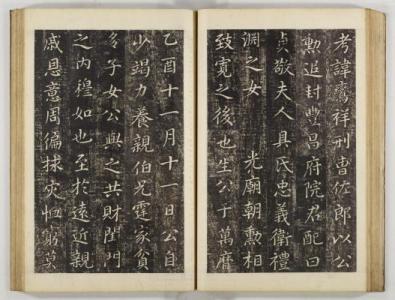 考諱鸞祥刑曹佐郎以公
勲追封豐昌府院君配曰
貞敬夫人具氏忠義衛禮
淵之女 光廟朝勲相
致寛之後也生公于萬暦
乙酉十一月十一日公自
少竭力養親伯兄霆家貧
多子女公與之共財閨門
之内穆如也至於遠近親
戚恩意周徧捄灾恤窮莫